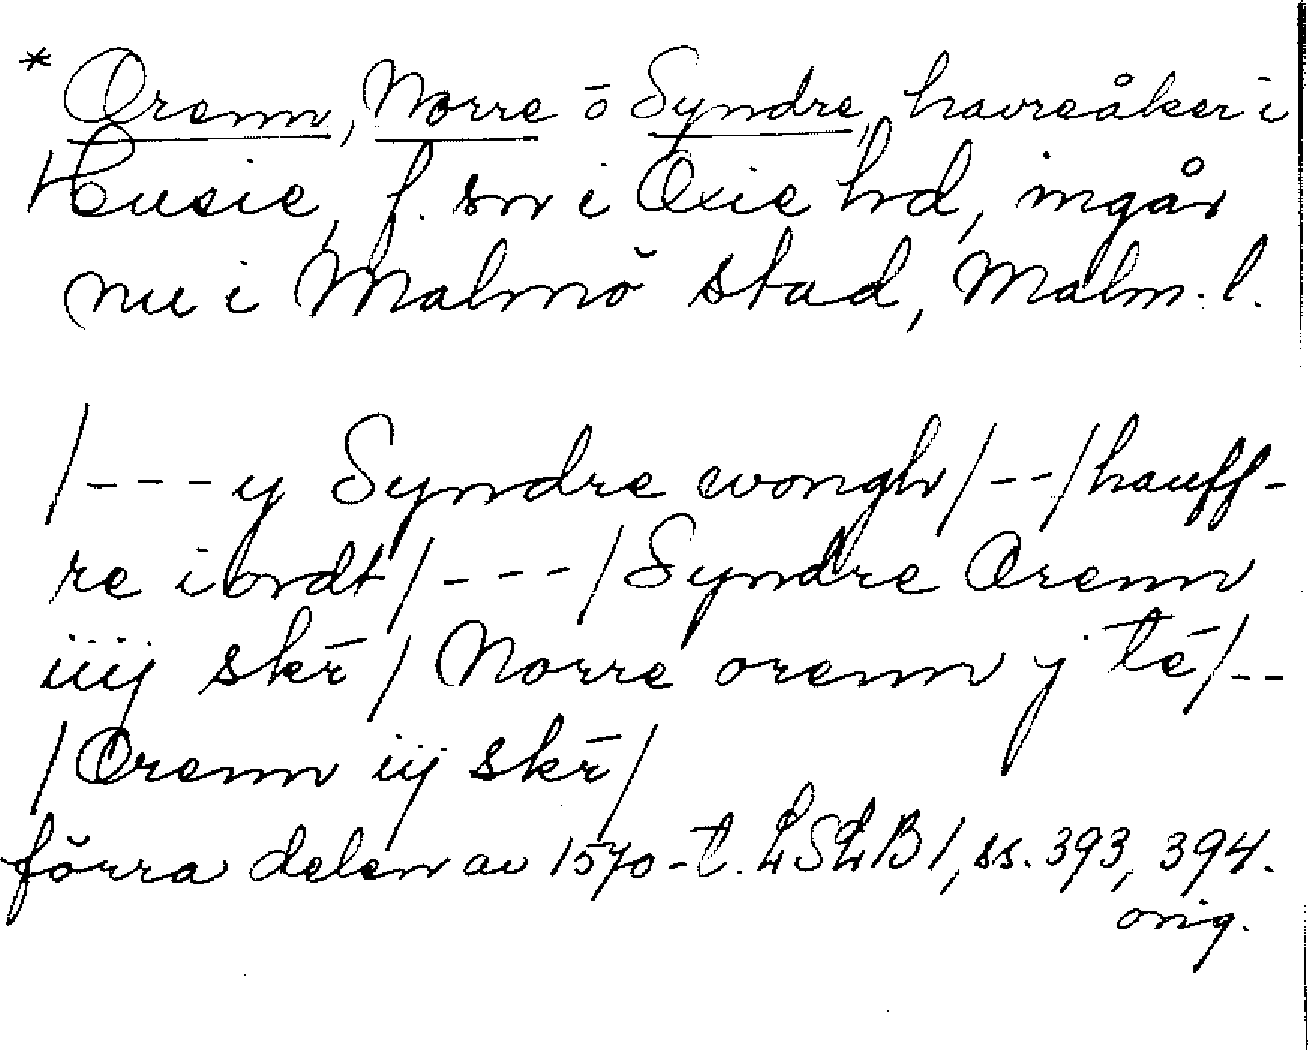 * Orenn, Norre o Syndre, havreåker i
Husie, f. sn i Oxie hd, ingår
nu i Malmö stad, Malm. l.
/---y Syndre wongh/--/hauff-
re iordt/---/Syndre Orenn
iiij skr̄/Norre orenn j tē/--
/Orenn iij skr̄/
förra delen av 1570-t. LSLB 1, ss. 393, 394.
orig.